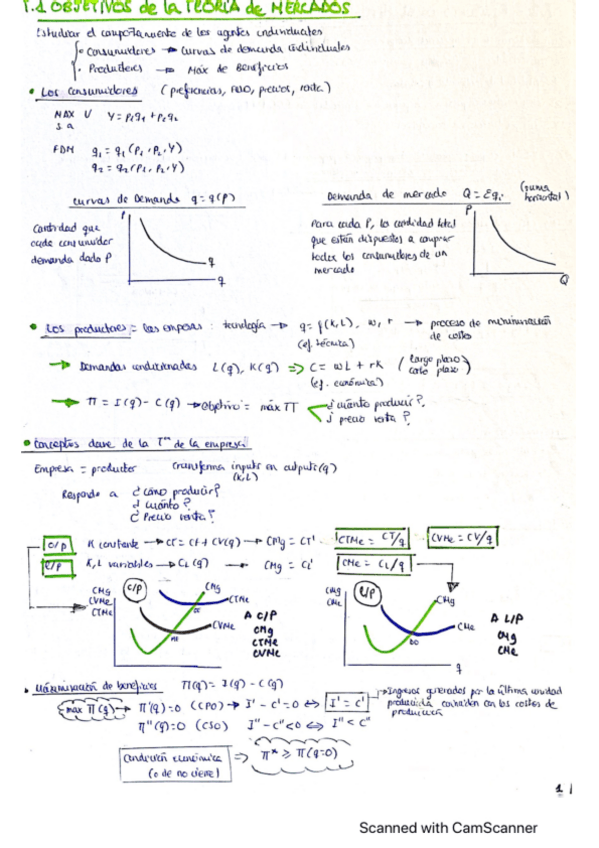 T.1 OBJETIVOS de la TEORIA de MERCADOS
Estudiar el comportamiento de los agentes individuales
· Consumidores → curvas de demanda individuales
· Productores → Máx de Beneficios
• Los consumidores (preferencias, precios, renta)
MAX U Y = p1q1 + p2q2
s.a
FDM q1 = q1 (P1, P2, Y)
q2 = q2 (P1, P2, Y)
curvas de Demanda q = q(p)
Demanda de mercado Q = Σqi (suma horizontal)
Cantidad que cada consumidor demanda dado P
P
q
q
Para cada P, la cantidad total que están dispuestos a comprar todos los consumidores de un mercado
P
Q
• Los productores = las empresas : tecnología → q = f(K,L), w, r → proceso de minimización de costes
(ef. técnica)
→ Demandas condicionadas L(q), K(q) ⇒ C = wL + rK (largo plazo / corto plazo)
(ef. económica)
→ Π = I(q) - C(q) → objetivo = máx Π
¿cuánto producir?
¿precio venta?
• Conceptos clave de la Tª de la empresa
Empresa = productor transforma inputs en outputs (q)
(K,L)
Responde a ¿cómo producir?
¿cuánto?
¿Precio venta?
C/P K constante → CT = CF + CV(q) → CMg = CT' CTMe = CT/q CVMe = CV/q
L/P K,L variables → CL(q) → CMg = CL' CMe = CL/q
CMg
CVMe
CTMe
C/P
CMg
CTMe
CVMe
A C/P
CMg
CTMe
CVMe
CMg
CMe
L/P
CMg
CMe
q
A L/P
CMg
CMe
• Maximización de beneficios Π(q) = I(q) - C(q)
max Π(q) → Π'(q) = 0 (CPO) → I' - C' = 0 ⇔ I' = C' → Ingresos generados por la última unidad producida coinciden con los costes de producción
Π''(q) = 0 (CSO) I'' - C'' < 0 ⇔ I'' < C''
Condición económica (o de no cierre) ⇒ Π* ≥ Π(q=0)
1
Scanned with CamScanner